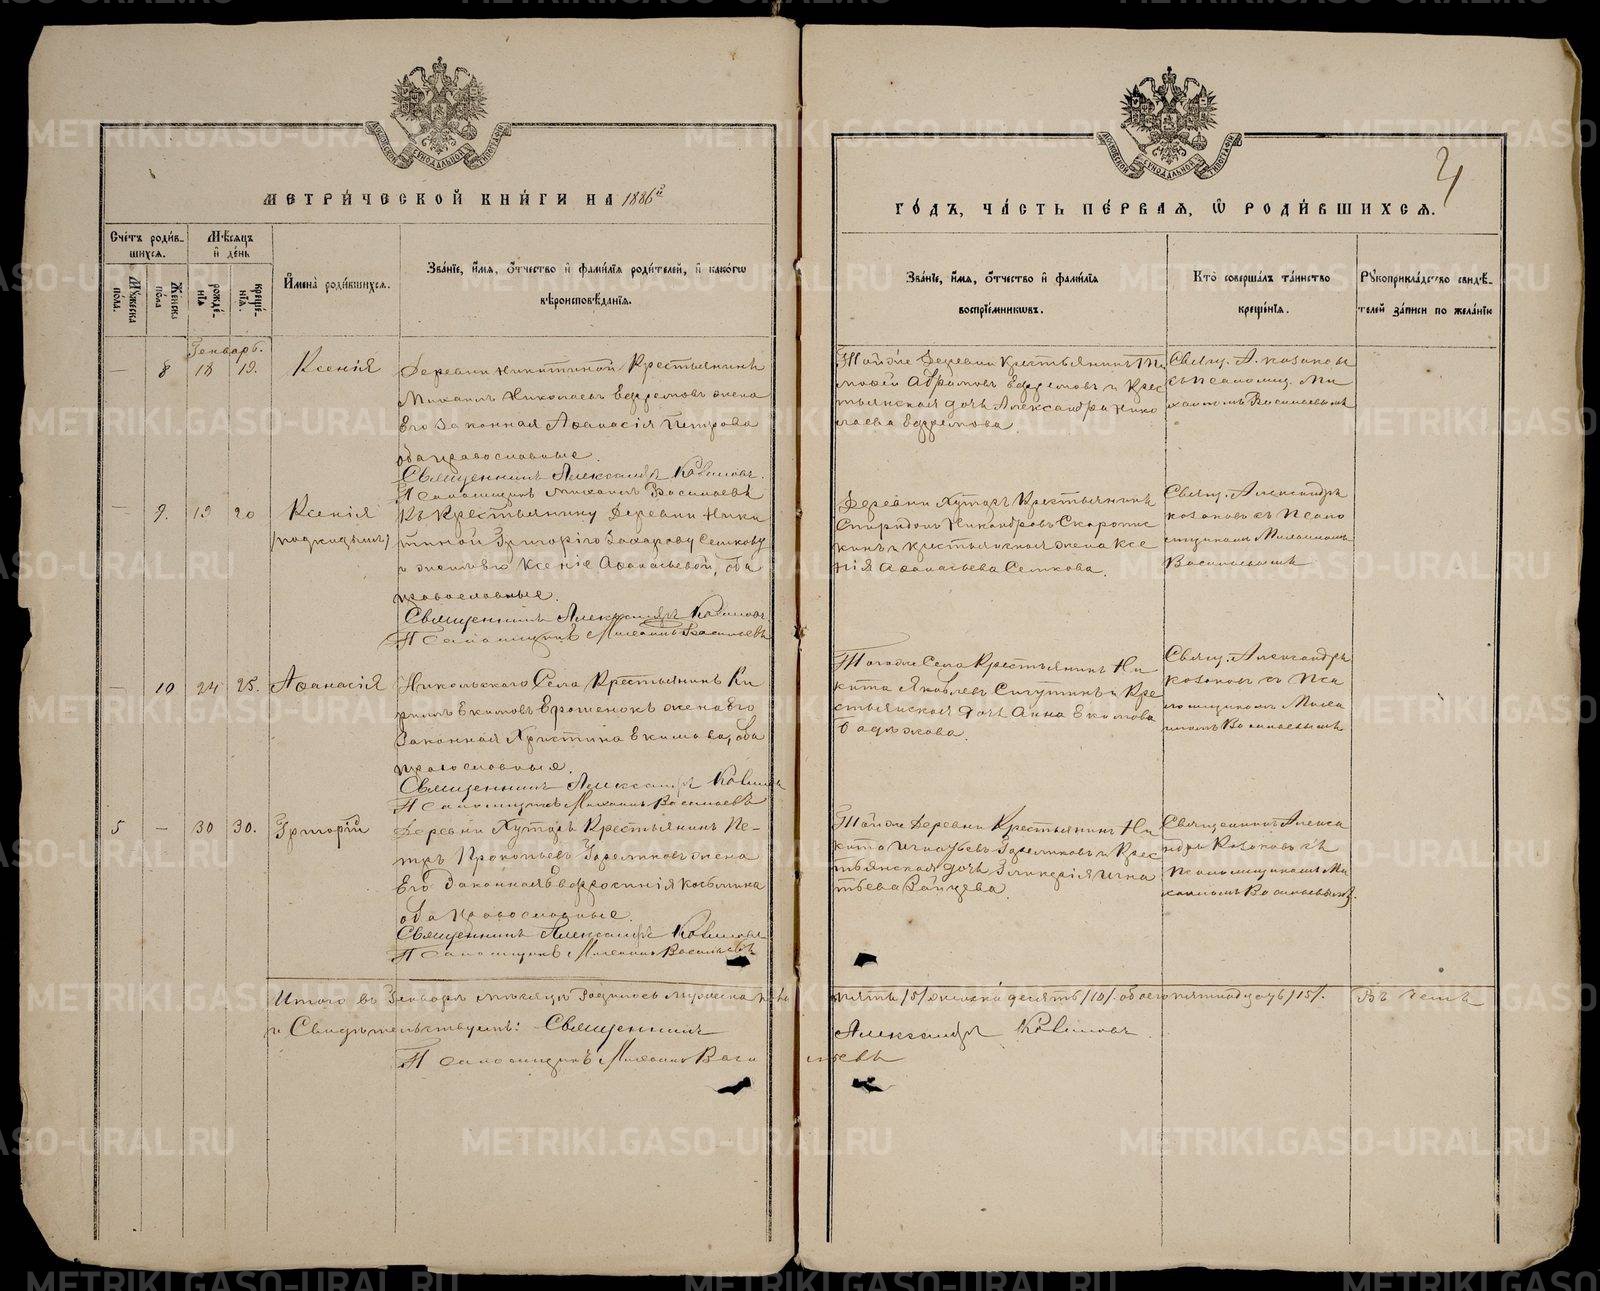 МЕТРИ́ЧЕСКОЙ КНИ́ГИ НА 1886й
ГО́ДЪ, ЧА́СТЬ ПЕ́РВАЯ, Ѡ҆ РОДИ́ВШИХСЯ.
4
Сче́тъ роди́в-
шихся.
Му́жеска по́ла.
Же́нска по́ла
Мѣ́сяцъ
и҆ де́нь
рожде́-
нїя
креще́-
нїя.
И҆мена̀ роди́вшихся.
Зва́нїе, и҆́мя, ѻ҆́тчество и҆ фами́лїя роди́телей, и҆ како́гѡ
вѣроисповѣ́данїя.
Зва́нїе, и҆́мя, ѻ҆́тчество и҆ фами́лїя
воспрїе́мникѡвъ.
Кто̀ соверша́лъ та́инство
креще́нїя.
Рꙋкоприкла́дство свидѣ́-
телей за́писи по жела́нїю
Генварь.
— 8 18 19. Ксенія
Деревни Никитиной Крестьянинъ
Михаилъ Николаевъ Ефремовъ жена
Его Законная Афанасія Петрова
оба православные.
Священникъ Александръ Козловъ
Псаломщикъ Михаилъ Васильевъ
Той же Деревни Крестьянинъ Ти
мофей Абрамовъ Ефремовъ и Крес
тьянская дочь Александра Нико
лаева Ефремова.
Свящ. А. Козловъ
съ псаломщ. Ми
хаиломъ Васильевымъ
— 9. 19 20 Ксенія
/подкидышъ/
Къ Крестьянину Деревни Ники
тиной Григорію Захарову Семкову
и жене его Ксеніе Афанасьевой, оба
православные.
Священникъ Александръ Козловъ
Псаломщикъ Михаилъ Васильевъ
Деревни Хуторъ Крестьянинъ
Спиридонъ Никандровъ
и крестьянская жена Ксе
нія Афанасьева Семкова.
Свящ. Александръ
Козловъ съ Псало
мщикомъ Михаиломъ
Васильевымъ
— 10 24 25. Афанасія
Никольскаго Села Крестьянинъ Ки
рилъ Екимовъ Ерошенокъ жена его
Законная Христина Екимова, оба
православныя.
Священникъ Александръ Козловъ
Псаломщикъ Михаилъ Васильевъ
Того же Села Крестьянинъ Ни
кита Яковлевъ и Кре
стьянская дочь Анна Екимова
Свящ. Александръ
Козловъ съ Пса
ломщикомъ Миха
иломъ Васильевымъ
5 — 30 30. Григорій
Деревни Хуторъ Крестьянинъ Пе-
тръ Прокопьевъ жена
Его Законная Евфросинія Косьмина
оба Православные.
Священникъ Александръ Козловъ
Псаломщикъ Михаилъ Васильевъ
Той же Деревни Крестьянинъ Ни
кита Игнатьевъ и Крес
тьянская дочь Гликерія Игна
тьева Зайцева.
Священникъ Алекса
ндръ Козловъ съ
Псаломщикомъ Ми
хаиломъ Васильевымъ.
Итого въ Генваре месяце Родилось Мужеска пола пять /5/ женска десять /10/. обоего пятнадцать /15/. Въ чемъ
и Свидетельствуемъ: Священникъ Александръ Козловъ
Псаломщикъ Михаилъ Васильевъ